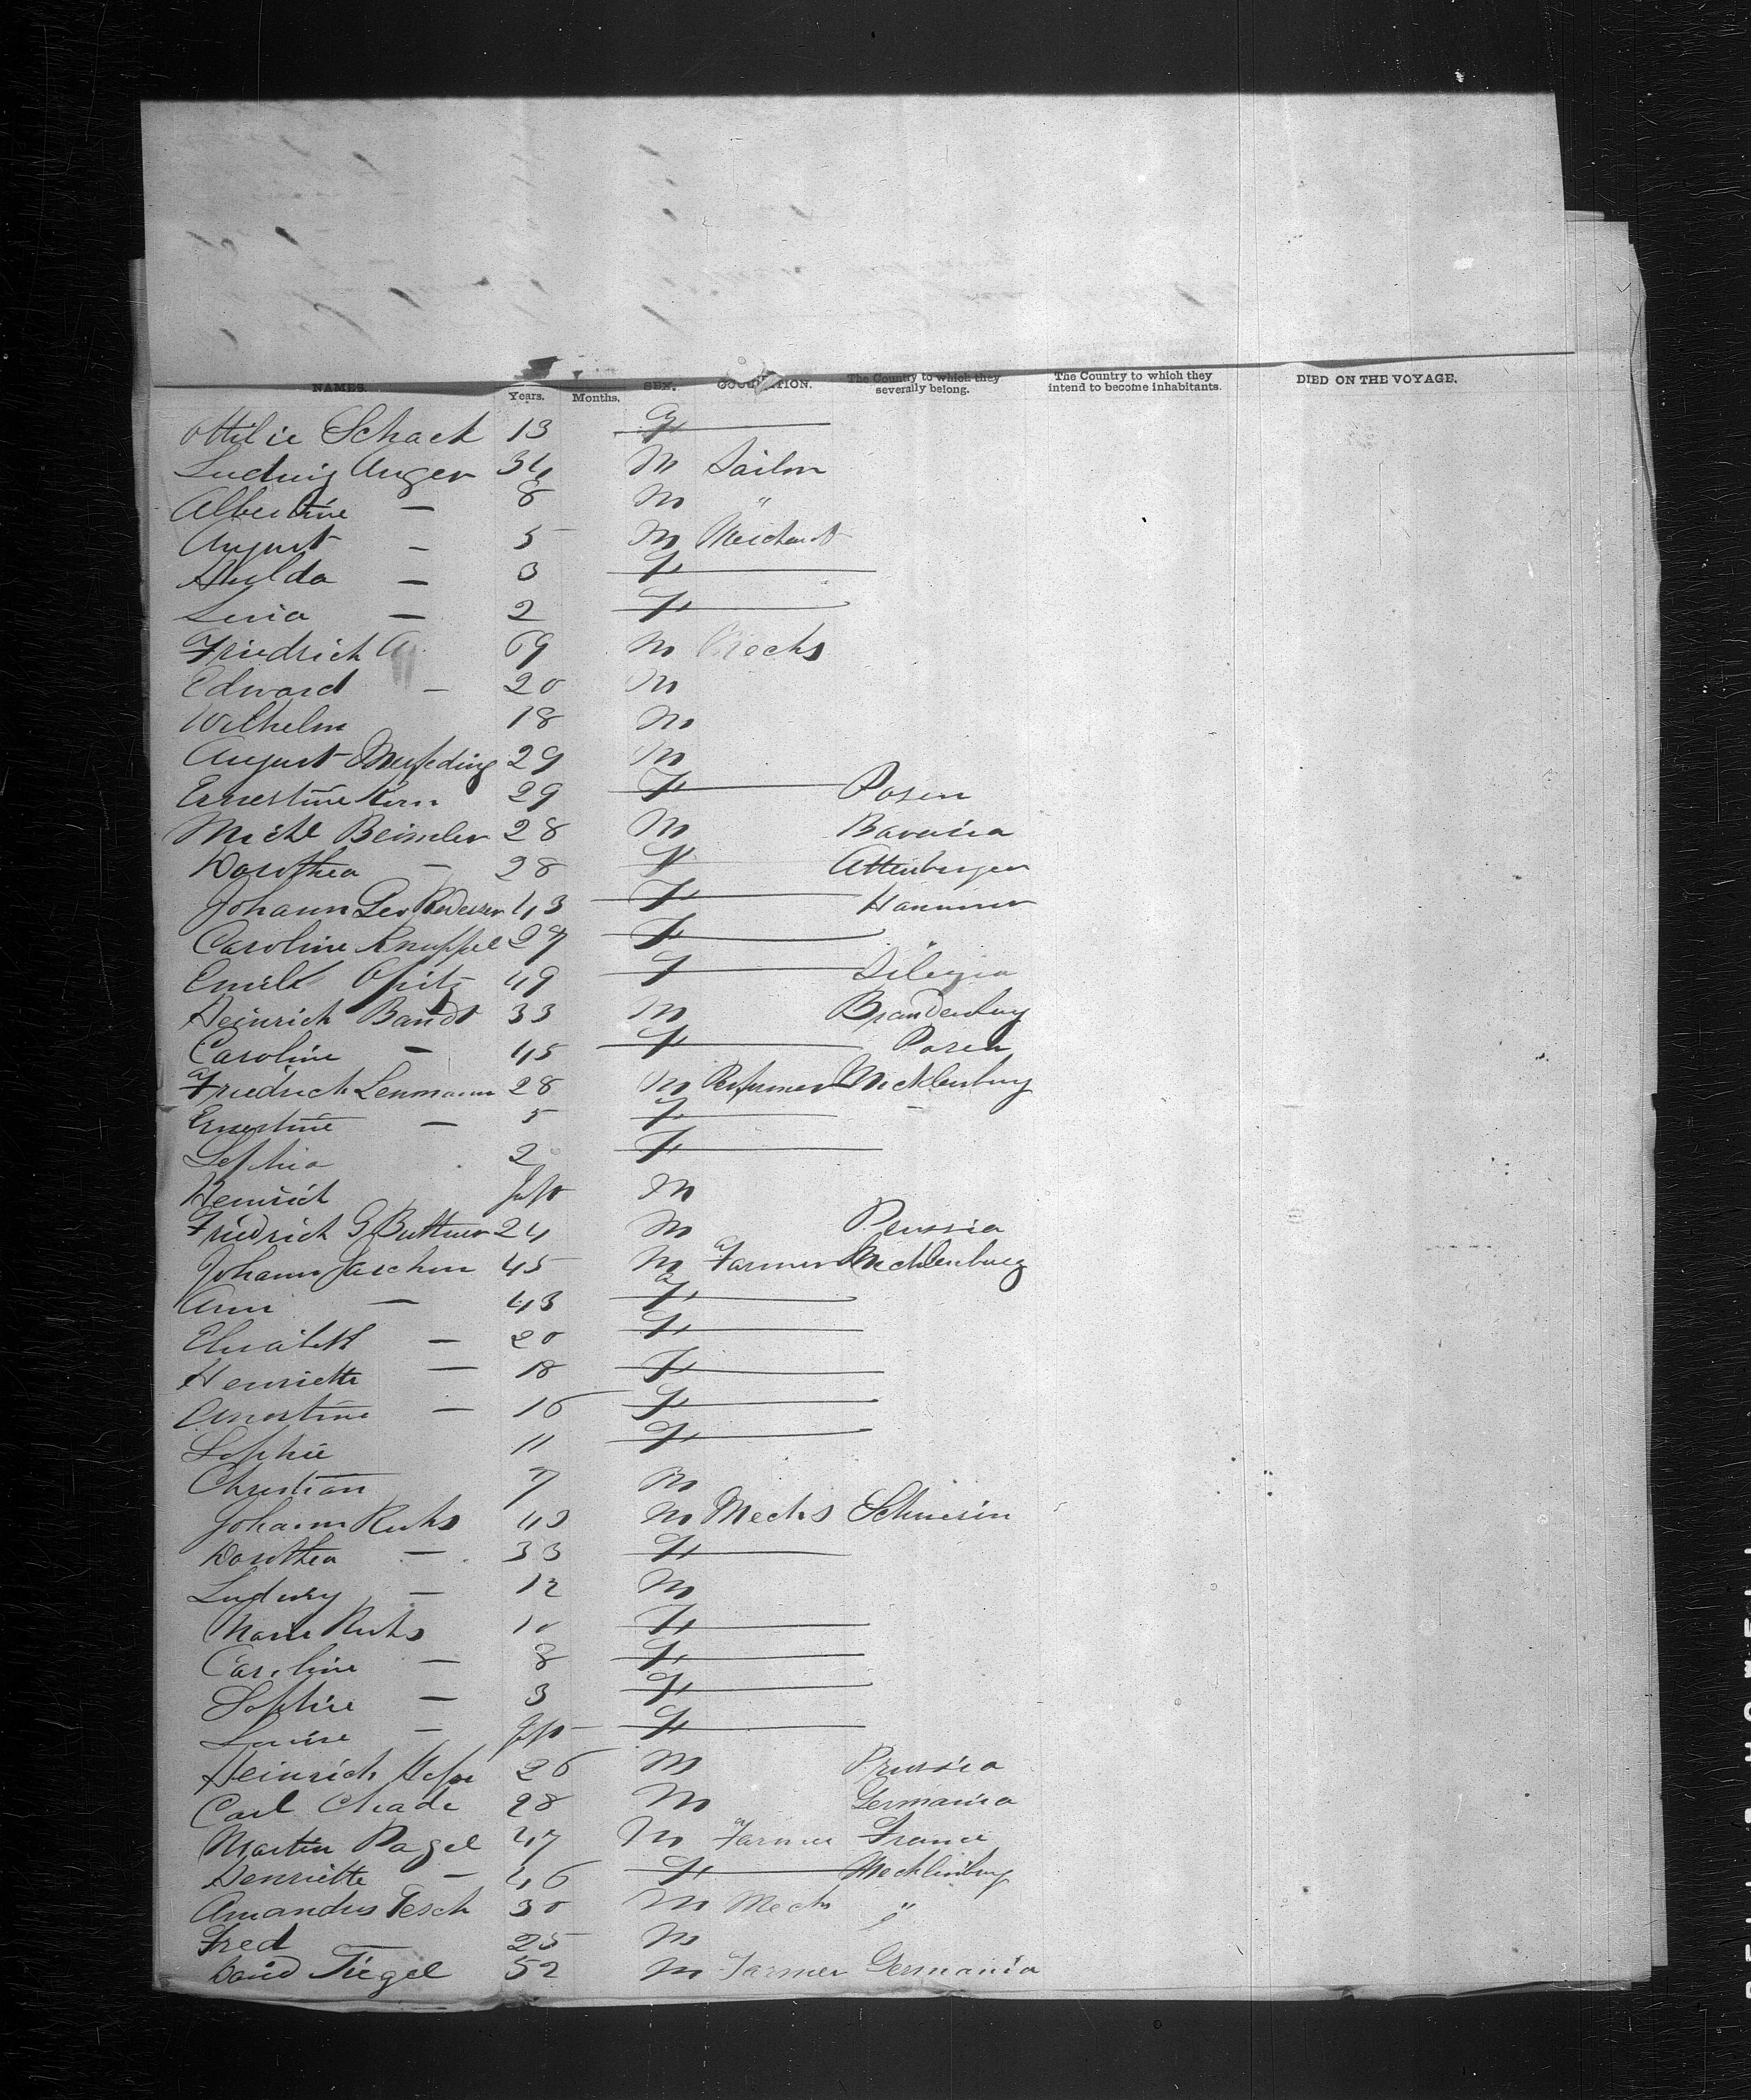 NAMES. Years. Months. SEX. OCCUPATION. The Country to which they severally belong. The Country to which they intend to become inhabitants. DIED ON THE VOYAGE.
Ottilie Schack 13 F
Ludwig Unger 34 M Sailor
Albertine — 8 M "
August — 5 M Merchant
Hulda — 3 F
— 2 F
Friedrich 69 M Mechs
Edward — 20 M
Wilhelm 18 M
August 29 M
Ernestine Kern 29 F Posen
Michl Beimler 28 M Bavaria
Dorothea — 28 F
Johann Geo 43 F Hannover
Caroline Knuppel 27 F "
Opitz 49 F Silezia
Heinrich Bandt 33 M Brandenburg
Caroline — 45 F Posen
Friedrich Lenmann 28 M Perfumer Mecklenburg
Ernestine — 5 F —
Sophia 2 F
Heinrich M
Friedrich G Buttner 24 M Prussia
Johann Jaschen 45 M Farmer Mecklenburg
Ann — 43 F
Elisabeth — 20 F
Henriette — 18 F
Ernestine — 16 F
Sophie 11 F
Christian 7 M
Johann Ruhs 43 M Mechs Schwerin
Dorothea — 33 F
Ludwig — 12 M
Marie Ruhs 10 F
Caroline — 8 F
Sophie — 3 F
Louise — F
Heinrich 26 M Prussia
Carl 28 M Germania
Martin Pagel 47 M Farmer France
Henriette — 46 F Mecklinburg
Amandus Tesch 30 M Mechs "
Fred 25 M
David Tiegel 52 M Farmer Germania